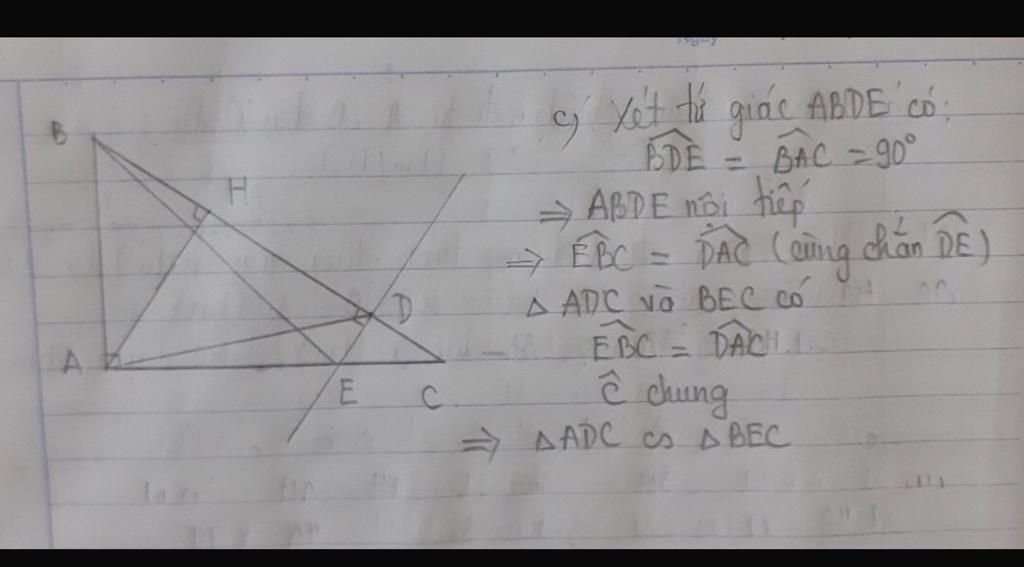 Ngày
c) Xét tứ giác ABDE có:
B
BDE = BAC = 90°
H
⇒ ABDE nội tiếp
⇒ EBC = DAC (cùng chắn DE)
D
△ ADC và BEC có
A
EBC = DAC
E
C
Ĉ chung
⇒ △ADC ∽ △BEC